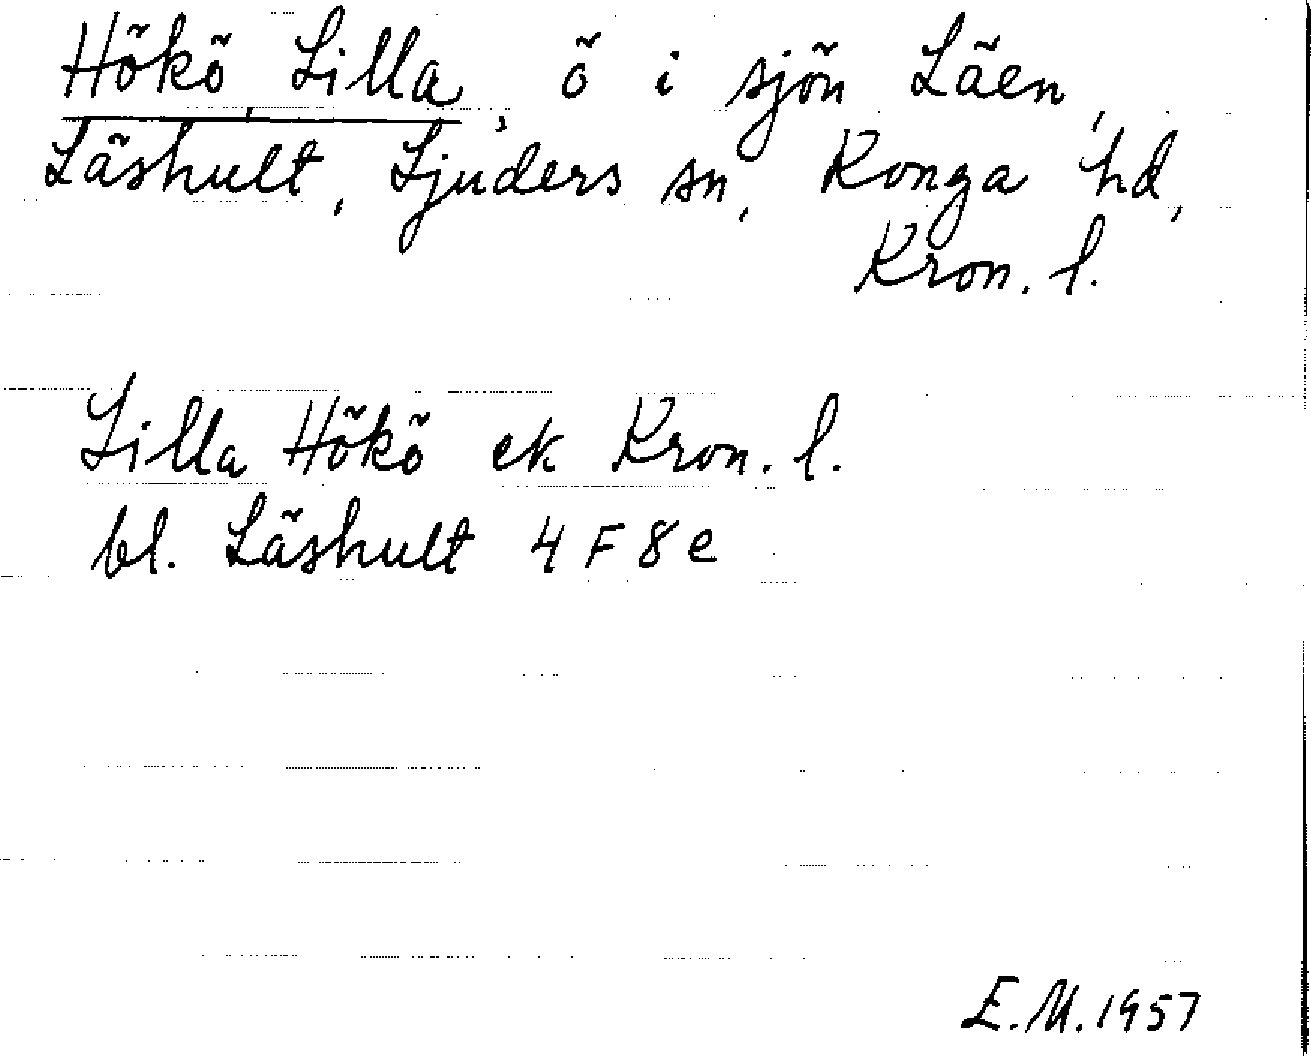 Hökö, Lilla, ö i sjön Läen,
Läshult, Ljuders sn, Konga hd,
Kron. l.
Lilla Hökö ek Kron. l.
bl. Läshult 4 F 8 e
E.M. 1957